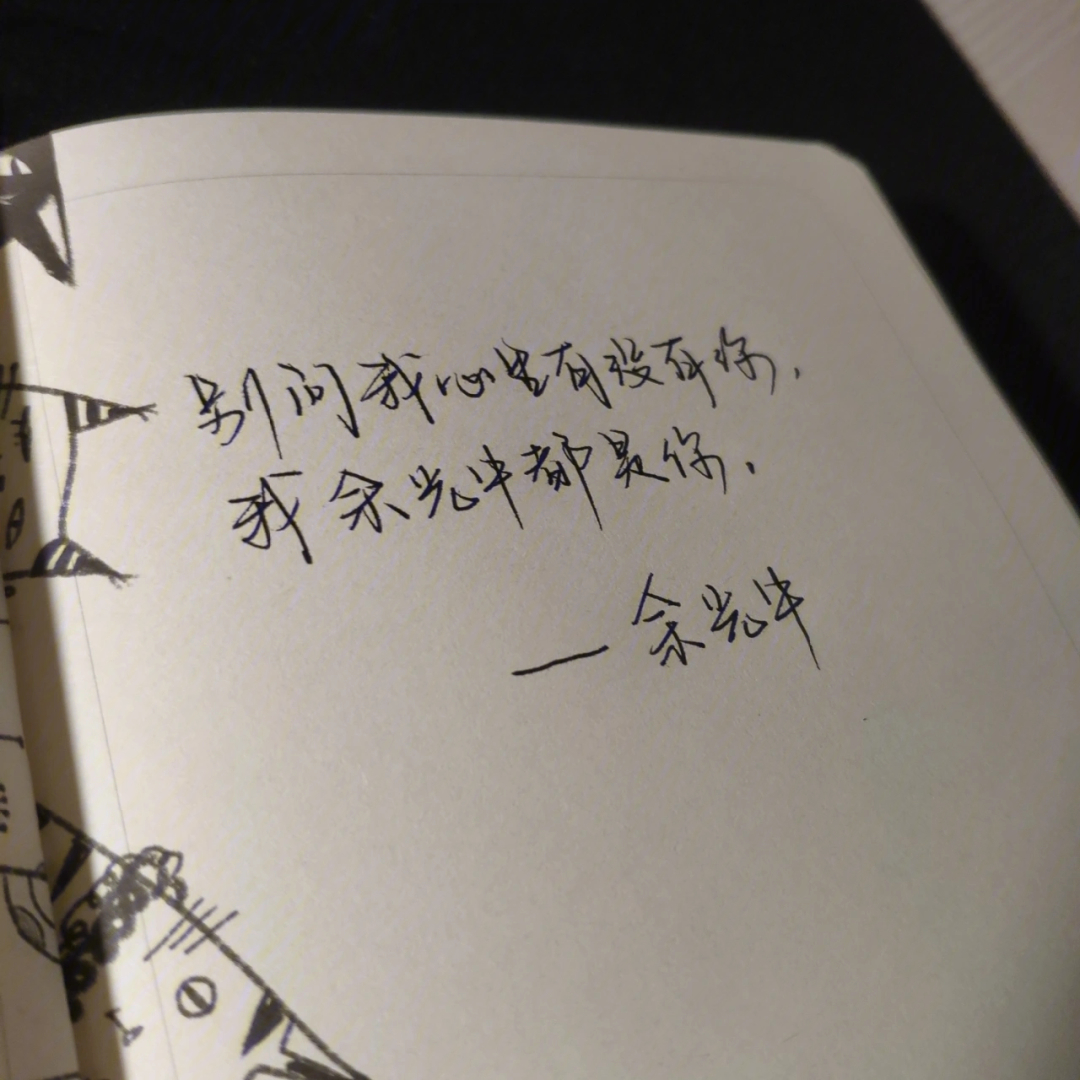 别问我心里有没有你,
我余光中都是你.
—余光中